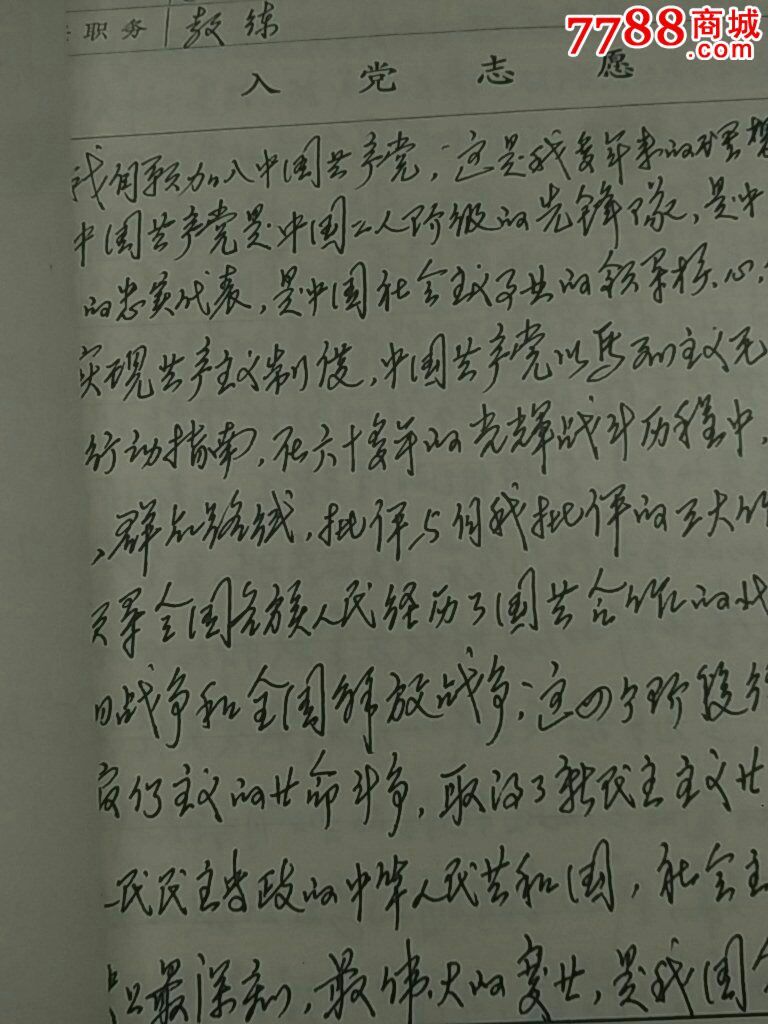 7788商城
.com
职务 教练
入党志愿
我自愿加入中国共产党,这是我多年来的理想
中国共产党是中国工人阶级的先锋队,是中
的忠实代表,是中国社会主义事业的领导核心,
实现共产主义制度,中国共产党以马列主义毛
行动指南,在六十多年的光辉战斗历程中,
、群众路线,批评与自我批评的三大作
领导全国各族人民经历了国共合作的北
日战争和全国解放战争;这四个阶段
官僚主义的革命斗争,取得了新民主主义革
民民主专政的中华人民共和国,社会主
最深刻,最伟大的变革,是我国